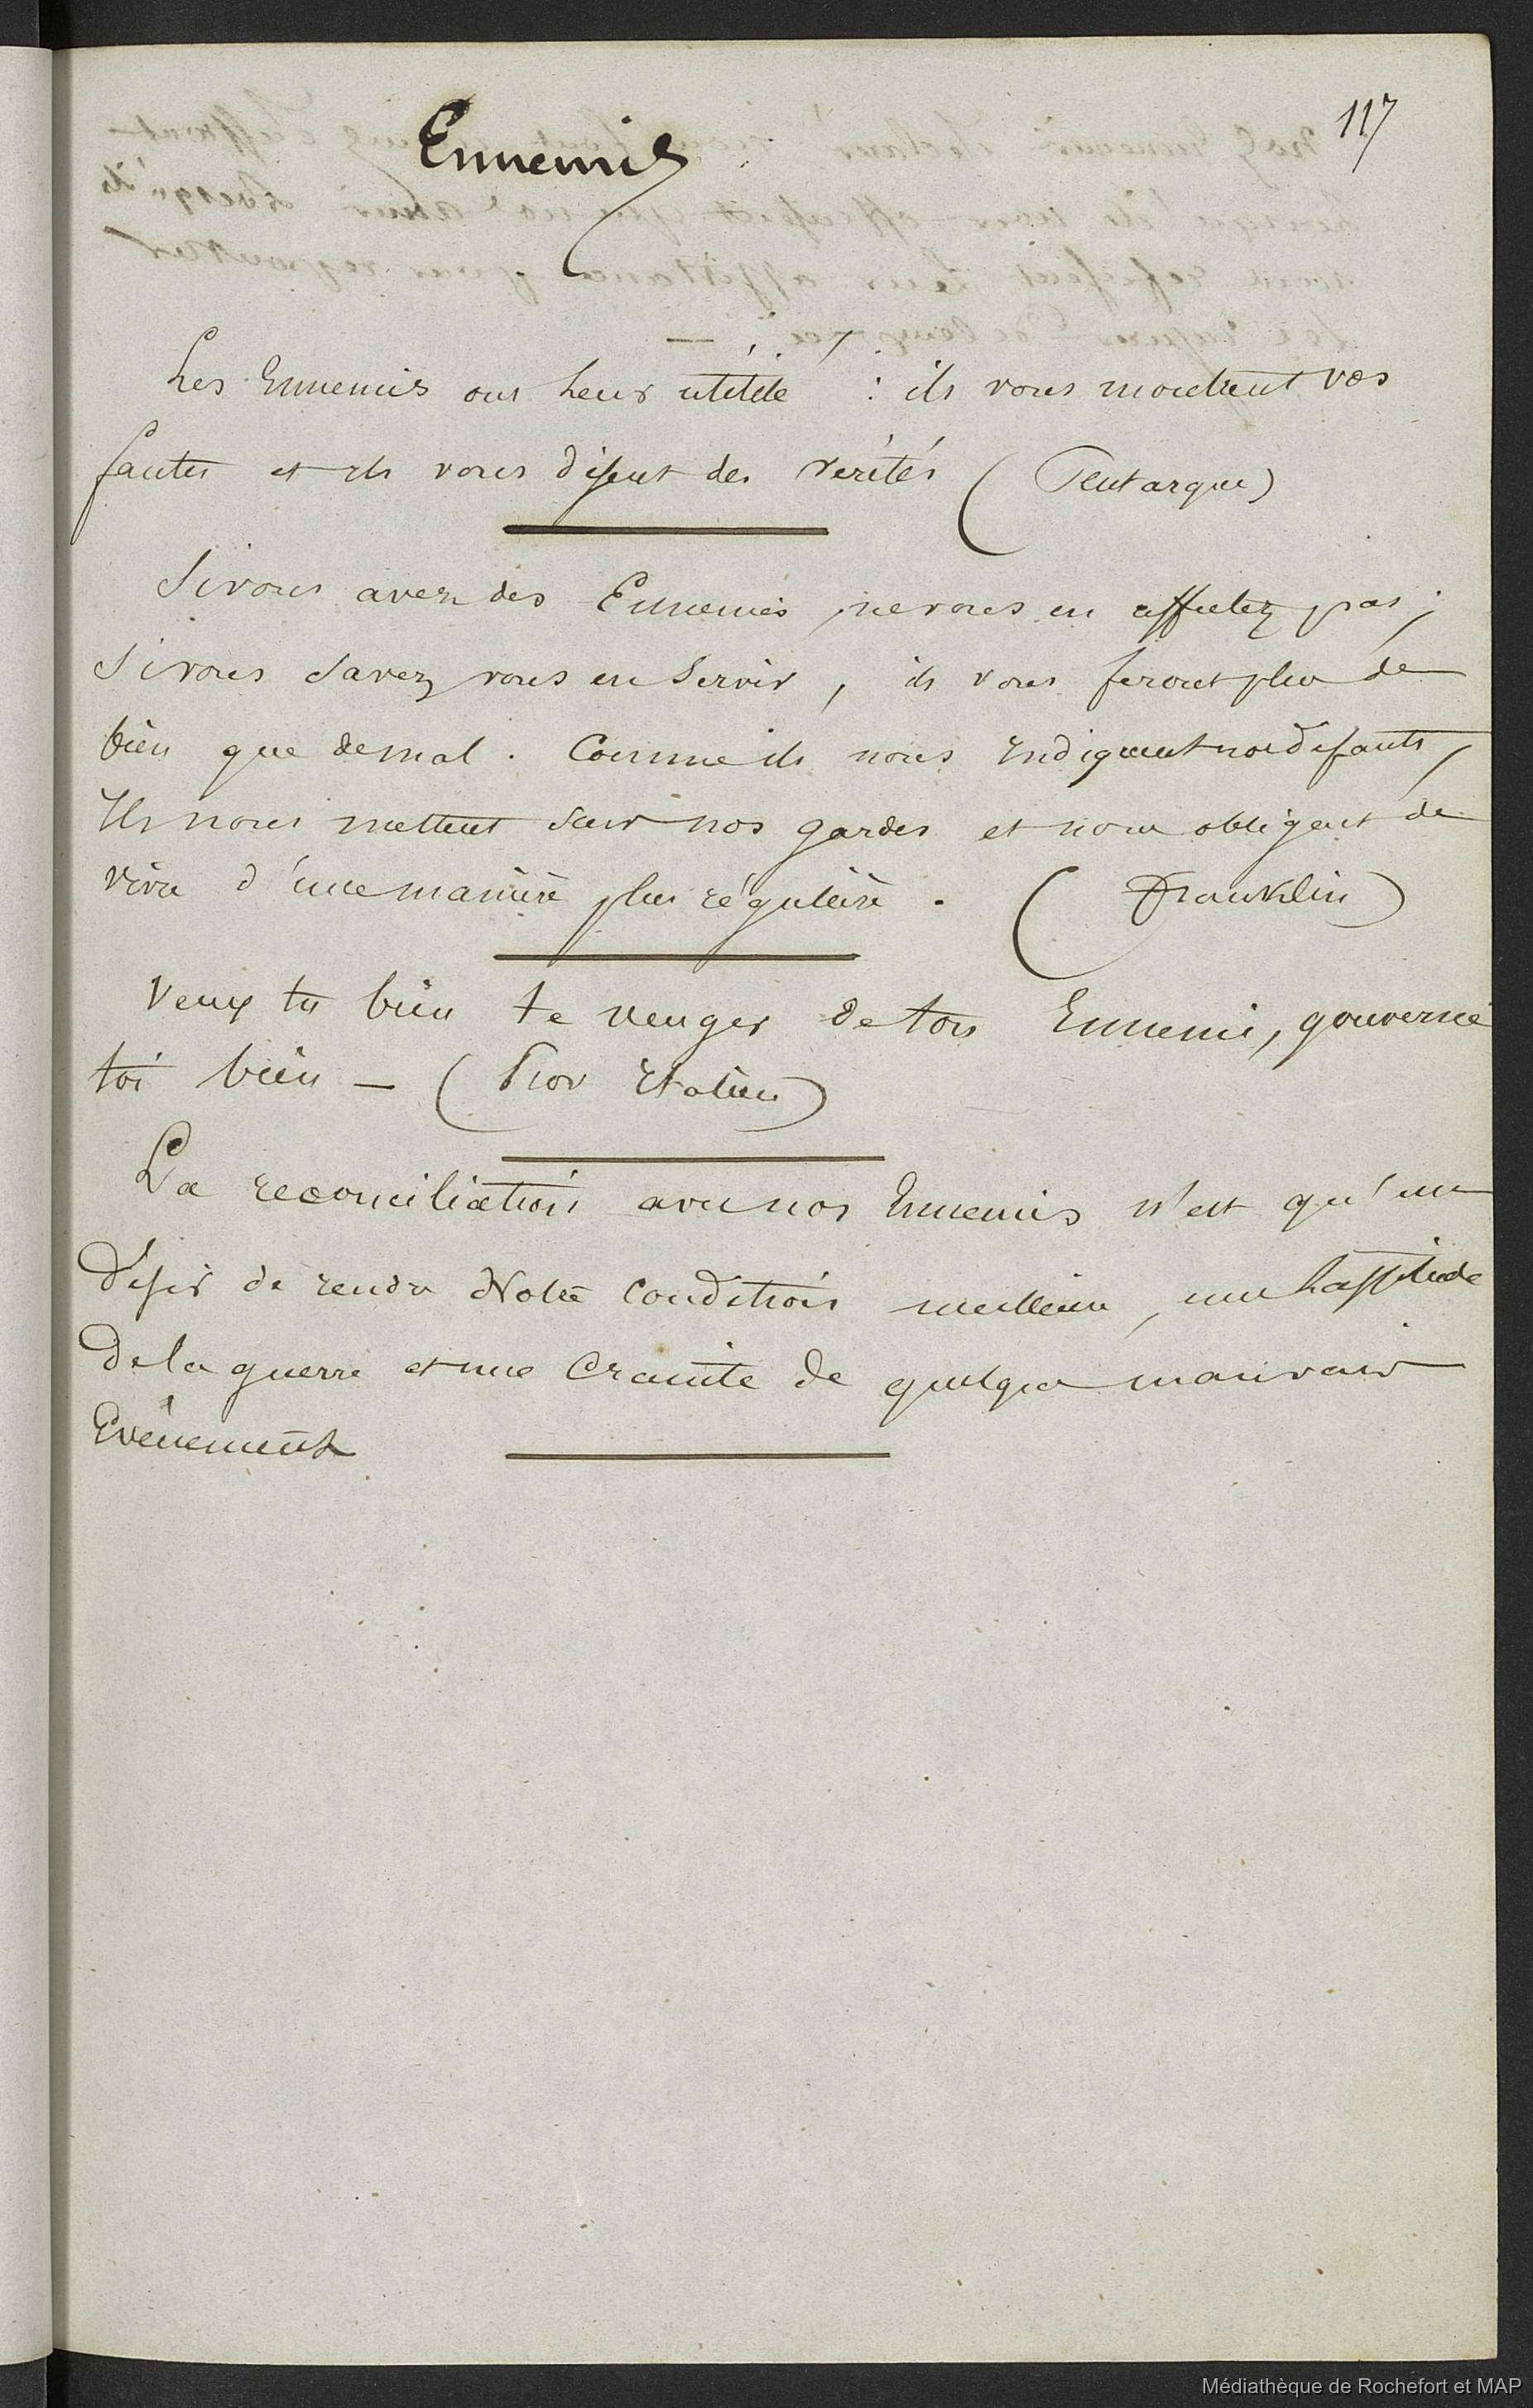 117
Ennemis
Les Ennemis ont Leur utilité : ils vous montrent vos
fautes et ils vous disent des vérités ( Plutarque )
Si vous avez des Ennemis, ne vous en affectez pas ;
Si vous Savez vous en Servir, ils vous feront plus de
bien que de mal. Comme ils nous Indiquent nos défauts,
Ils nous mettent Sur nos gardes et nous obligent de
vivre d'une manière plus régulière. ( Franklin )
Veux tu bien te venger de ton Ennemi, gouverne
toi bien — ( Prov Italien )
La reconciliation avec nos Ennemis n'est qu'un
Désir de rendre Notre Condition meilleure, une Lassitude
De la guerre et une Crainte de quelque mauvais
Evénement
Médiathèque de Rochefort et MAP